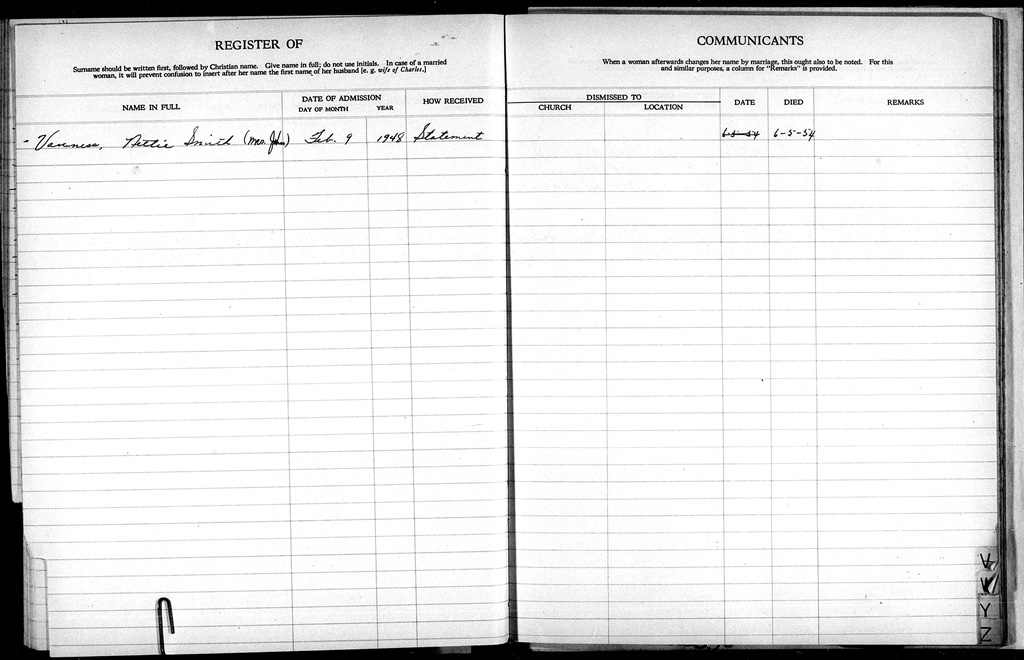 REGISTER OF
Surname should be written first, followed by Christian name. Give name in full; do not use initials. In case of a married
woman, it will prevent confusion to insert after her name the first name of her husband [e. g. wife of Charles.]
NAME IN FULL
DATE OF ADMISSION
DAY OF MONTH YEAR
HOW RECEIVED
- Vanness, Nettie Smith (Mrs. John) Feb. 9 1948 Statement
COMMUNICANTS
When a woman afterwards changes her name by marriage, this ought also to be noted. For this
and similar purposes, a column for "Remarks" is provided.
DISMISSED TO
CHURCH LOCATION
DATE
DIED
REMARKS
6-5-54 6-5-54
V
W
Y
Z